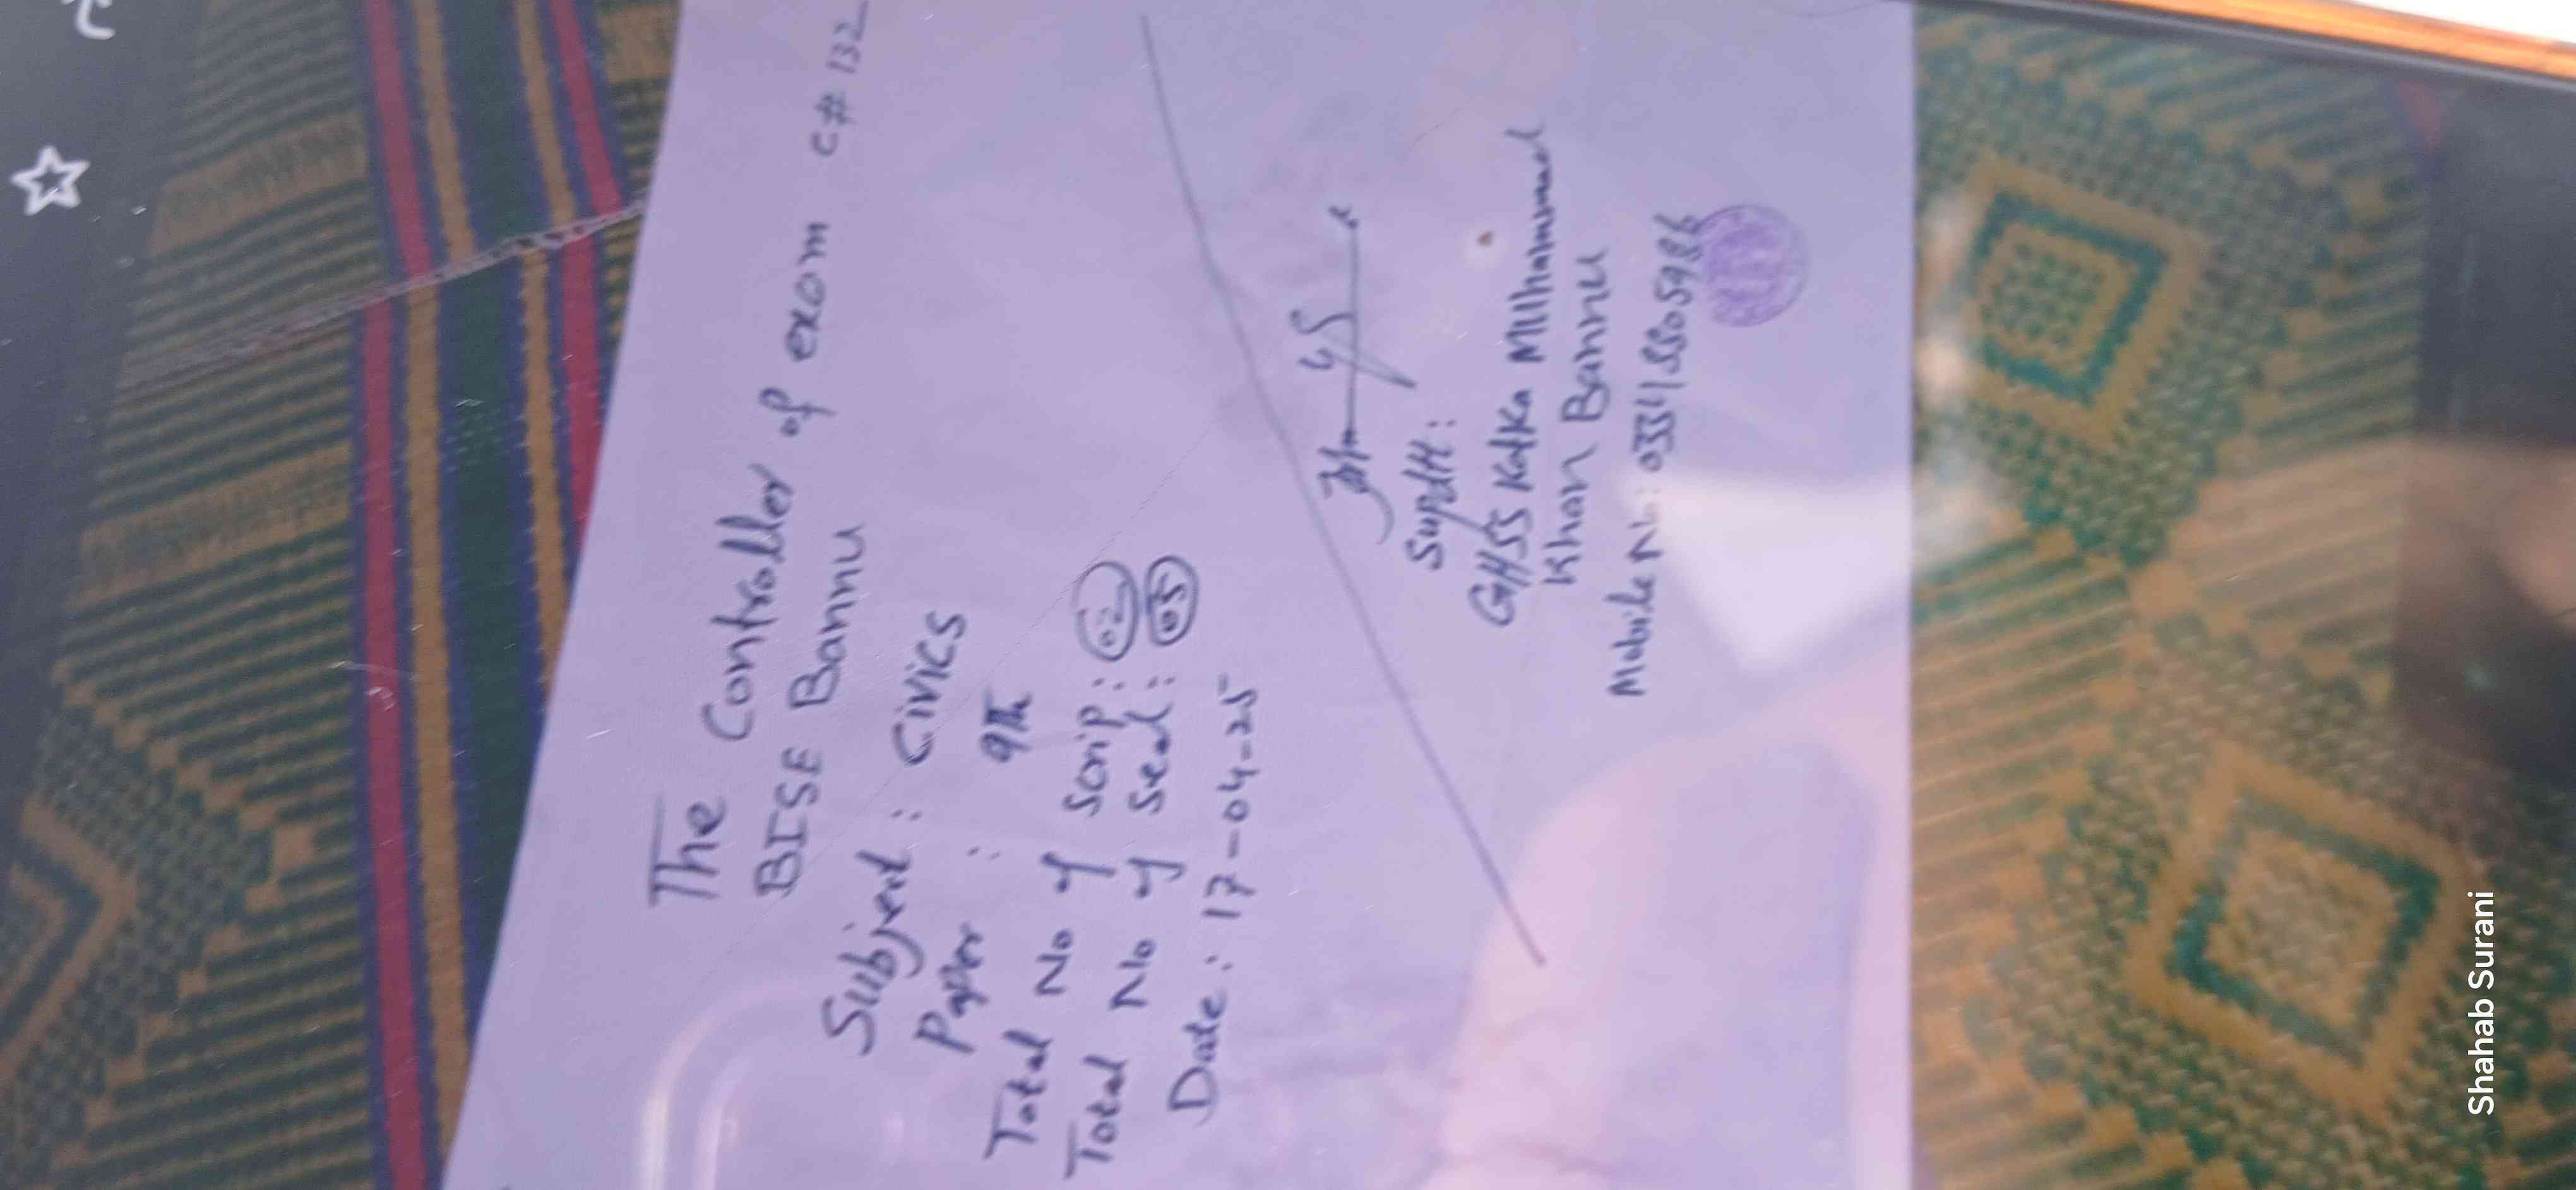 The Controller of exam C# 132
BISE Bannu
Subject : Civics
Paper : 9Th
Total No of Scrip : 02
Total No of Seal : 05
Date : 17-04-25
Supdtt:
GHSS Kotka MUhammad
Khan Bannu
Mobile No:
Shahab Surani